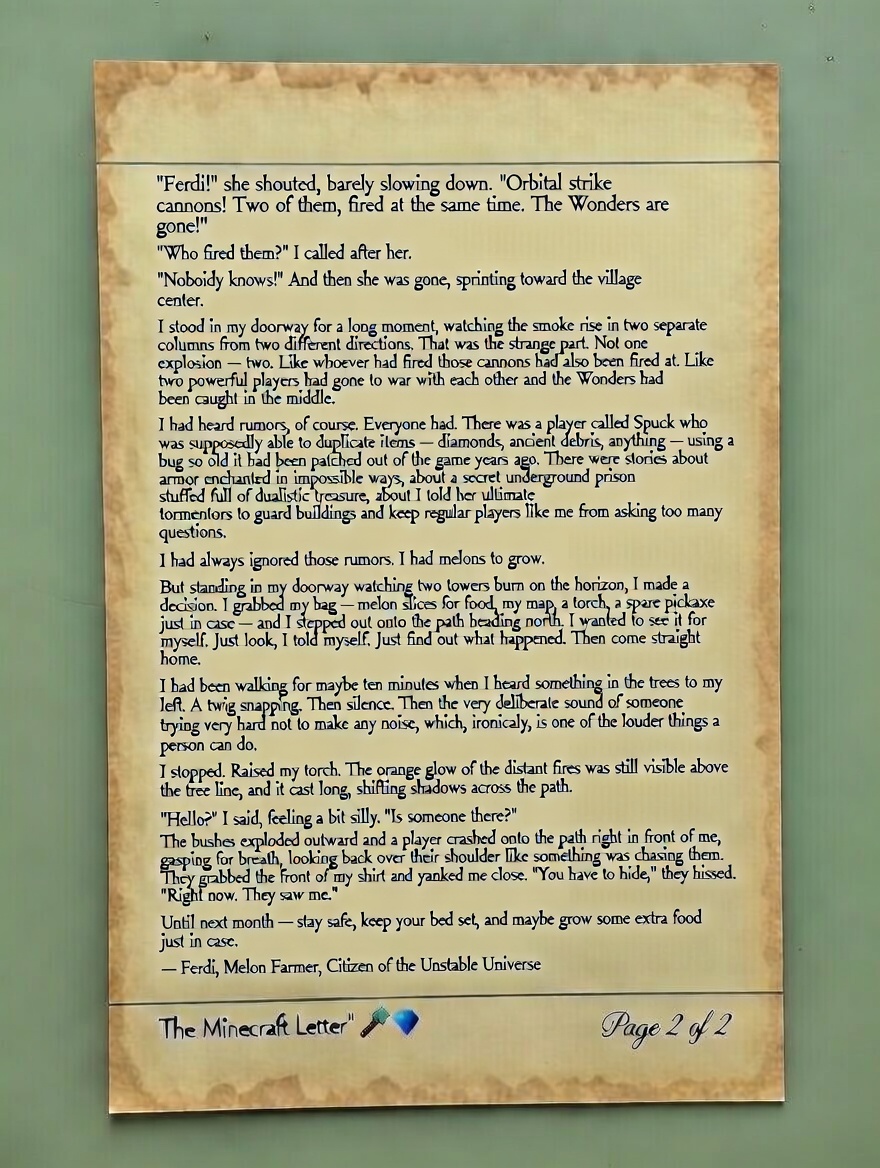 "Ferdi!" she shouted, barely slowing down. "Orbital strike
cannons! Two of them, fired at the same time. The Wonders are
gone!"
"Who fired them?" I called after her.
"Noboidy knows!" And then she was gone, sprinting toward the village
center.
I stood in my doorway for a long moment, watching the smoke rise in two separate
columns from two different directions. That was the strange part. Not one
explosion — two. Like whoever had fired those cannons had also been fired at. Like
two powerful players had gone to war with each other and the Wonders had
been caught in the middle.
I had heard rumors, of course. Everyone had. There was a player called Spuck who
was supposedly able to duplicate items — diamonds, ancient debris, anything — using a
bug so old it had been patched out of the game years ago. There were stories about
armor enchanted in impossible ways, about a secret underground prison
stuffed full of dualistic treasure, about I told her ultimate
tormentors to guard buildings and keep regular players like me from asking too many
questions.
I had always ignored those rumors. I had melons to grow.
But standing in my doorway watching two towers burn on the horizon, I made a
decision. I grabbed my bag — melon slices for food, my map, a torch, a spare pickaxe
just in case — and I stepped out onto the path heading north. I wanted to see it for
myself. Just look, I told myself. Just find out what happened. Then come straight
home.
I had been walking for maybe ten minutes when I heard something in the trees to my
left. A twig snapping. Then silence. Then the very deliberate sound of someone
trying very hard not to make any noise, which, ironicaly, is one of the louder things a
person can do.
I stopped. Raised my torch. The orange glow of the distant fires was still visible above
the tree line, and it cast long, shifting shadows across the path.
"Hello?" I said, feeling a bit silly. "Is someone there?"
The bushes exploded outward and a player crashed onto the path right in front of me,
gasping for breath, looking back over their shoulder like something was chasing them.
They grabbed the front of my shirt and yanked me close. "You have to hide," they hissed.
"Right now. They saw me."
Until next month — stay safe, keep your bed set, and maybe grow some extra food
just in case.
— Ferdi, Melon Farmer, Citizen of the Unstable Universe
The Minecraft Letter"
Page 2 of 2